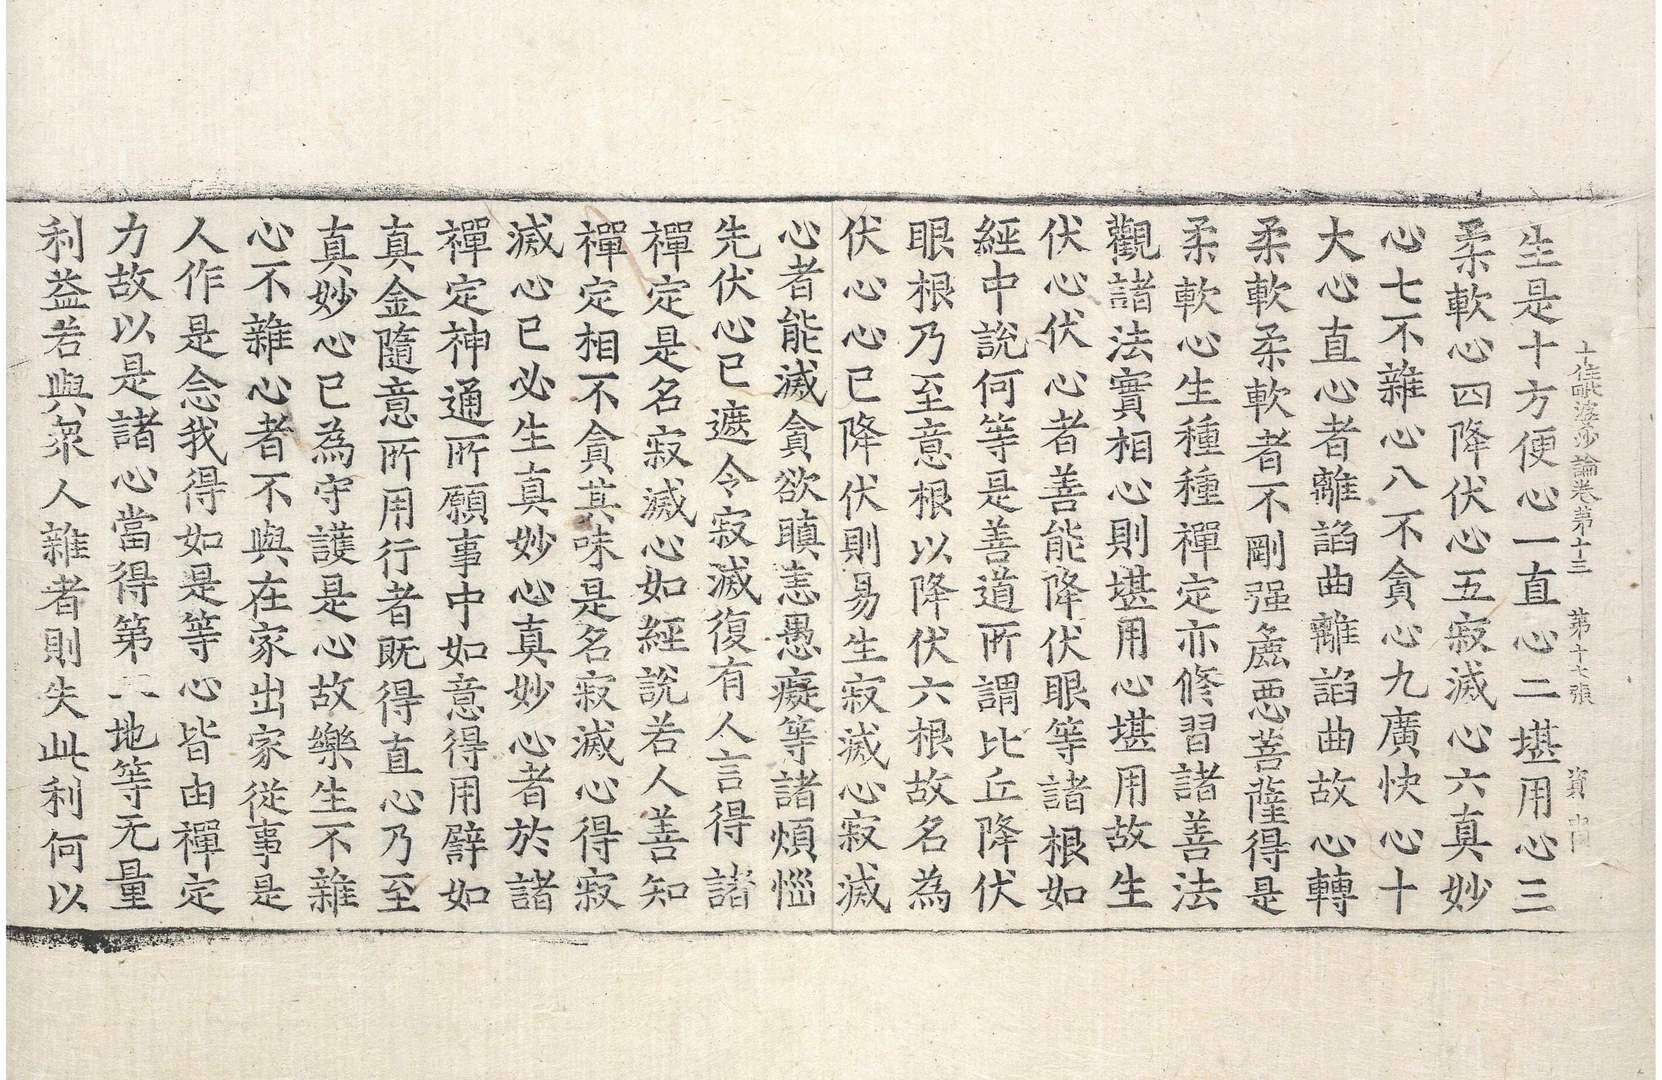 十住毗婆沙論卷第十三　第十七張　資
生是十方便心一直心二堪用心三
柔軟心四降伏心五寂滅心六真妙
心七不雜心八不貪心九廣快心十
大心直心者離諂曲離諂曲故心轉
柔軟柔軟者不剛强麁惡菩薩得是
柔軟心生種種禪定亦修習諸善法
觀諸法實相心則堪用心堪用故生
伏心伏心者善能降伏眼等諸根如
經中說何等是善道所謂比丘降伏
眼根乃至意根以降伏六根故名為
伏心心已降伏則易生寂滅心寂滅
心者能滅貪欲瞋恚愚癡等諸煩惱
先伏心已遮令寂滅復有人言得諸
禪定是名寂滅心如經說若人善知
禪定相不貪其味是名寂滅心得寂
滅心已必生真妙心真妙心者於諸
禪定神通所願事中如意得用譬如
真金隨意所用行者既得直心乃至
真妙心已為守護是心故樂生不雜
心不雜心者不與在家出家從事是
人作是念我得如是等心皆由禪定
力故以是諸心當得第二地等无量
利益若與衆人雜者則失此利何以